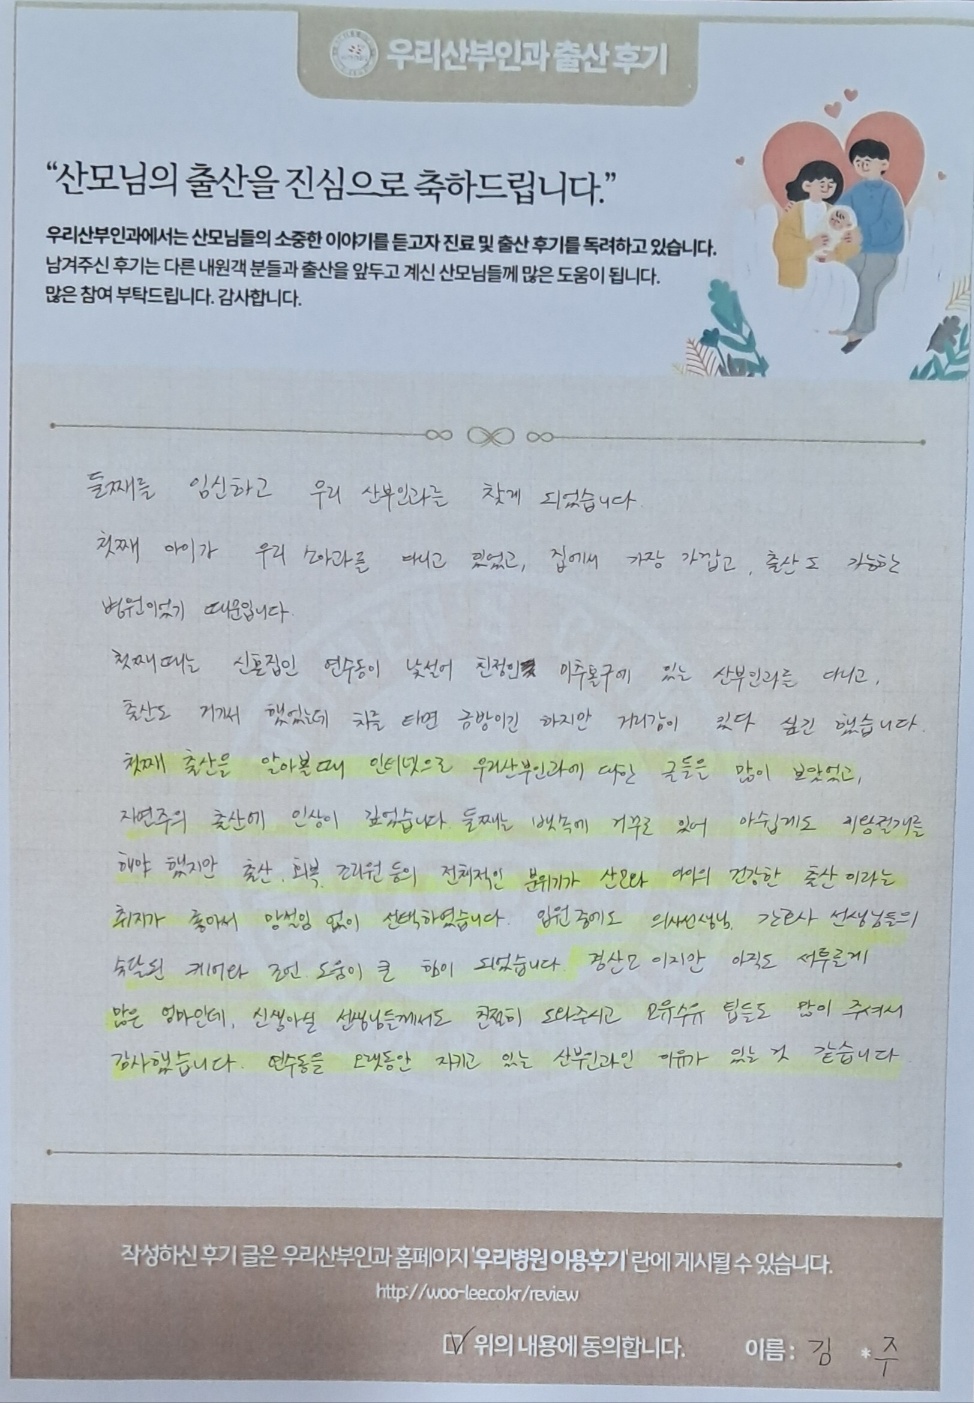 우리산부인과 출산 후기
“산모님의 출산을 진심으로 축하드립니다.”
우리산부인과에서는 산모님들의 소중한 이야기를 듣고자 진료 및 출산 후기를 독려하고 있습니다.
남겨주신 후기는 다른 내원객 분들과 출산을 앞두고 계신 산모님들께 많은 도움이 됩니다.
많은 참여 부탁드립니다. 감사합니다.
둘째를 임신하고 우리 산부인과를 찾게 되었습니다.
첫째 아이가 우리 소아과를 다니고 있었고, 집에서 가장 가깝고, 출산도 가능한
병원이었기 때문입니다.
첫째때는 신혼집인 연수동이 낯설어 친정인 미추홀구에 있는 산부인과를 다니고,
출산도 거기서 했었는데 차를 타면 금방이긴 하지만 거리감이 있다 싶긴 했습니다.
첫째 출산을 알아볼때 인터넷으로 우리산부인과에 대한 글들을 많이 보았었고,
자연주의 출산에 인상이 깊었습니다. 둘째는 뱃속에 거꾸로 있어 아쉽게도 제왕절개를
해야 했지만 출산, 회복, 조리원 등의 전체적인 분위기가 산모와 아이의 건강한 출산이라는
취지가 좋아서 망설임 없이 선택하였습니다. 입원 중에도 의사선생님, 간호사 선생님들의
숙달된 케어와 조언 도움이 큰 힘이 되었습니다. 경산모이지만 아직도 서투른게
많은 엄마인데, 신생아실 선생님들께서도 친절히 도와주시고 모유수유 팁들도 많이 주셔서
감사했습니다. 연수동을 오랫동안 지키고 있는 산부인과인 이유가 있는 것 같습니다.
작성하신 후기 글은 우리산부인과 홈페이지 '우리병원 이용후기' 란에 게시될 수 있습니다.
http://woo-lee.co.kr/review
위의 내용에 동의합니다. 이름 : 김 *주